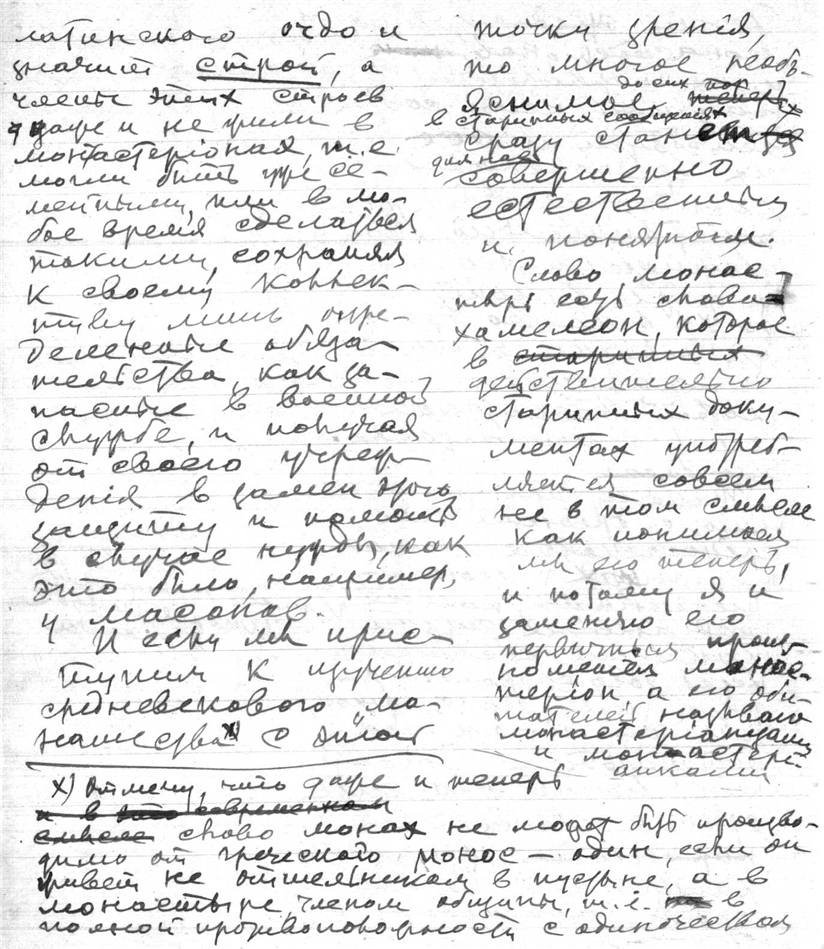 латинского ордо и
значит строй, а
члены этих строев
даже и не жили в
монастеріонах, т.е.
могли быть уже се-
мейными, или в лю-
бое время сделаться
такими, сохраняя
к своему коллек-
тиву лишь опре-
деленные обяза-
тельства, как за-
пасные в военной
службе, и получая
от своего учреж-
денія в замен этого
защиту и помощь
в случае нужды, как
это было, например,
у масонов.
И если мы прис-
тупим к изученію
средневекового "мо-
нашества x) с этой
точки зренія,
то многое необъ-
до сих пор
яснимое теперь
в старинных сообщеніях
сразу станет
для нас
совершенно
естественным
и понятным.
Слово монас-
тырь есть слово-
хамелеон, которое
в старинных
действительно
старинных доку-
ментах употреб-
ляется совсем
не в том смысле
как понимаем
мы его теперь,
и потому я и
заменяю его
первичным
монас-
теріон а его оби-
тателей называю
монастеріанцами
и монастері-
анками
x) Отмечу, что даже и теперь
и в этом современном
смысле слово монах не может быть произво-
димо от греческого монос — один, если он
живет не отшельником в пустыне, а в
монастыре, членом общины, т.е. в
полной противоположности с одиночеством